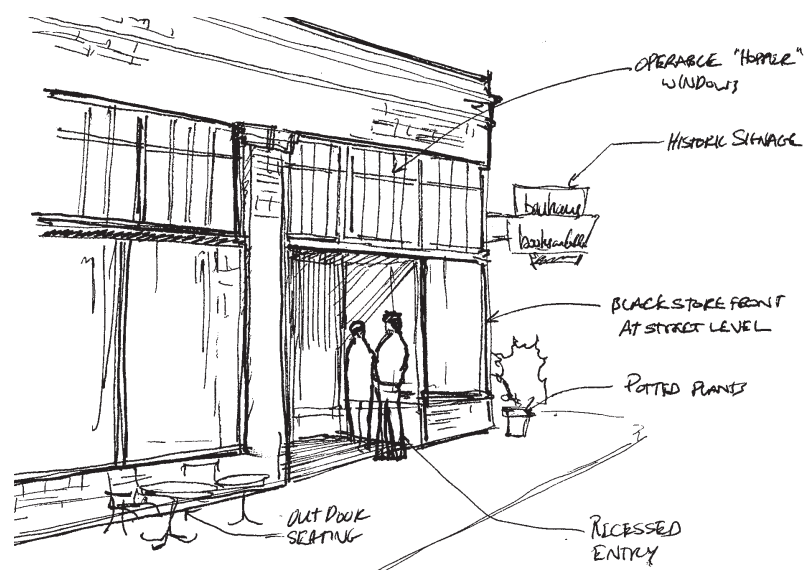 OPERABLE "HOPPER"
WINDOWS
HISTORIC SIGNAGE
bauhaus
BLACK STOREFRONT
AT STREET LEVEL
POTTED PLANTS
OUTDOOR
SEATING
RECESSED
ENTRY